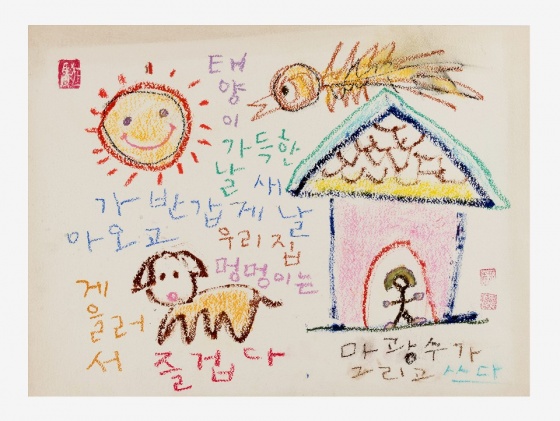 태
양
이
가득한
날 새
가 반갑게 날
아오고
우리집
멍멍이는
게
을러
서
즐겁다
마광수가
그리고 쓰다